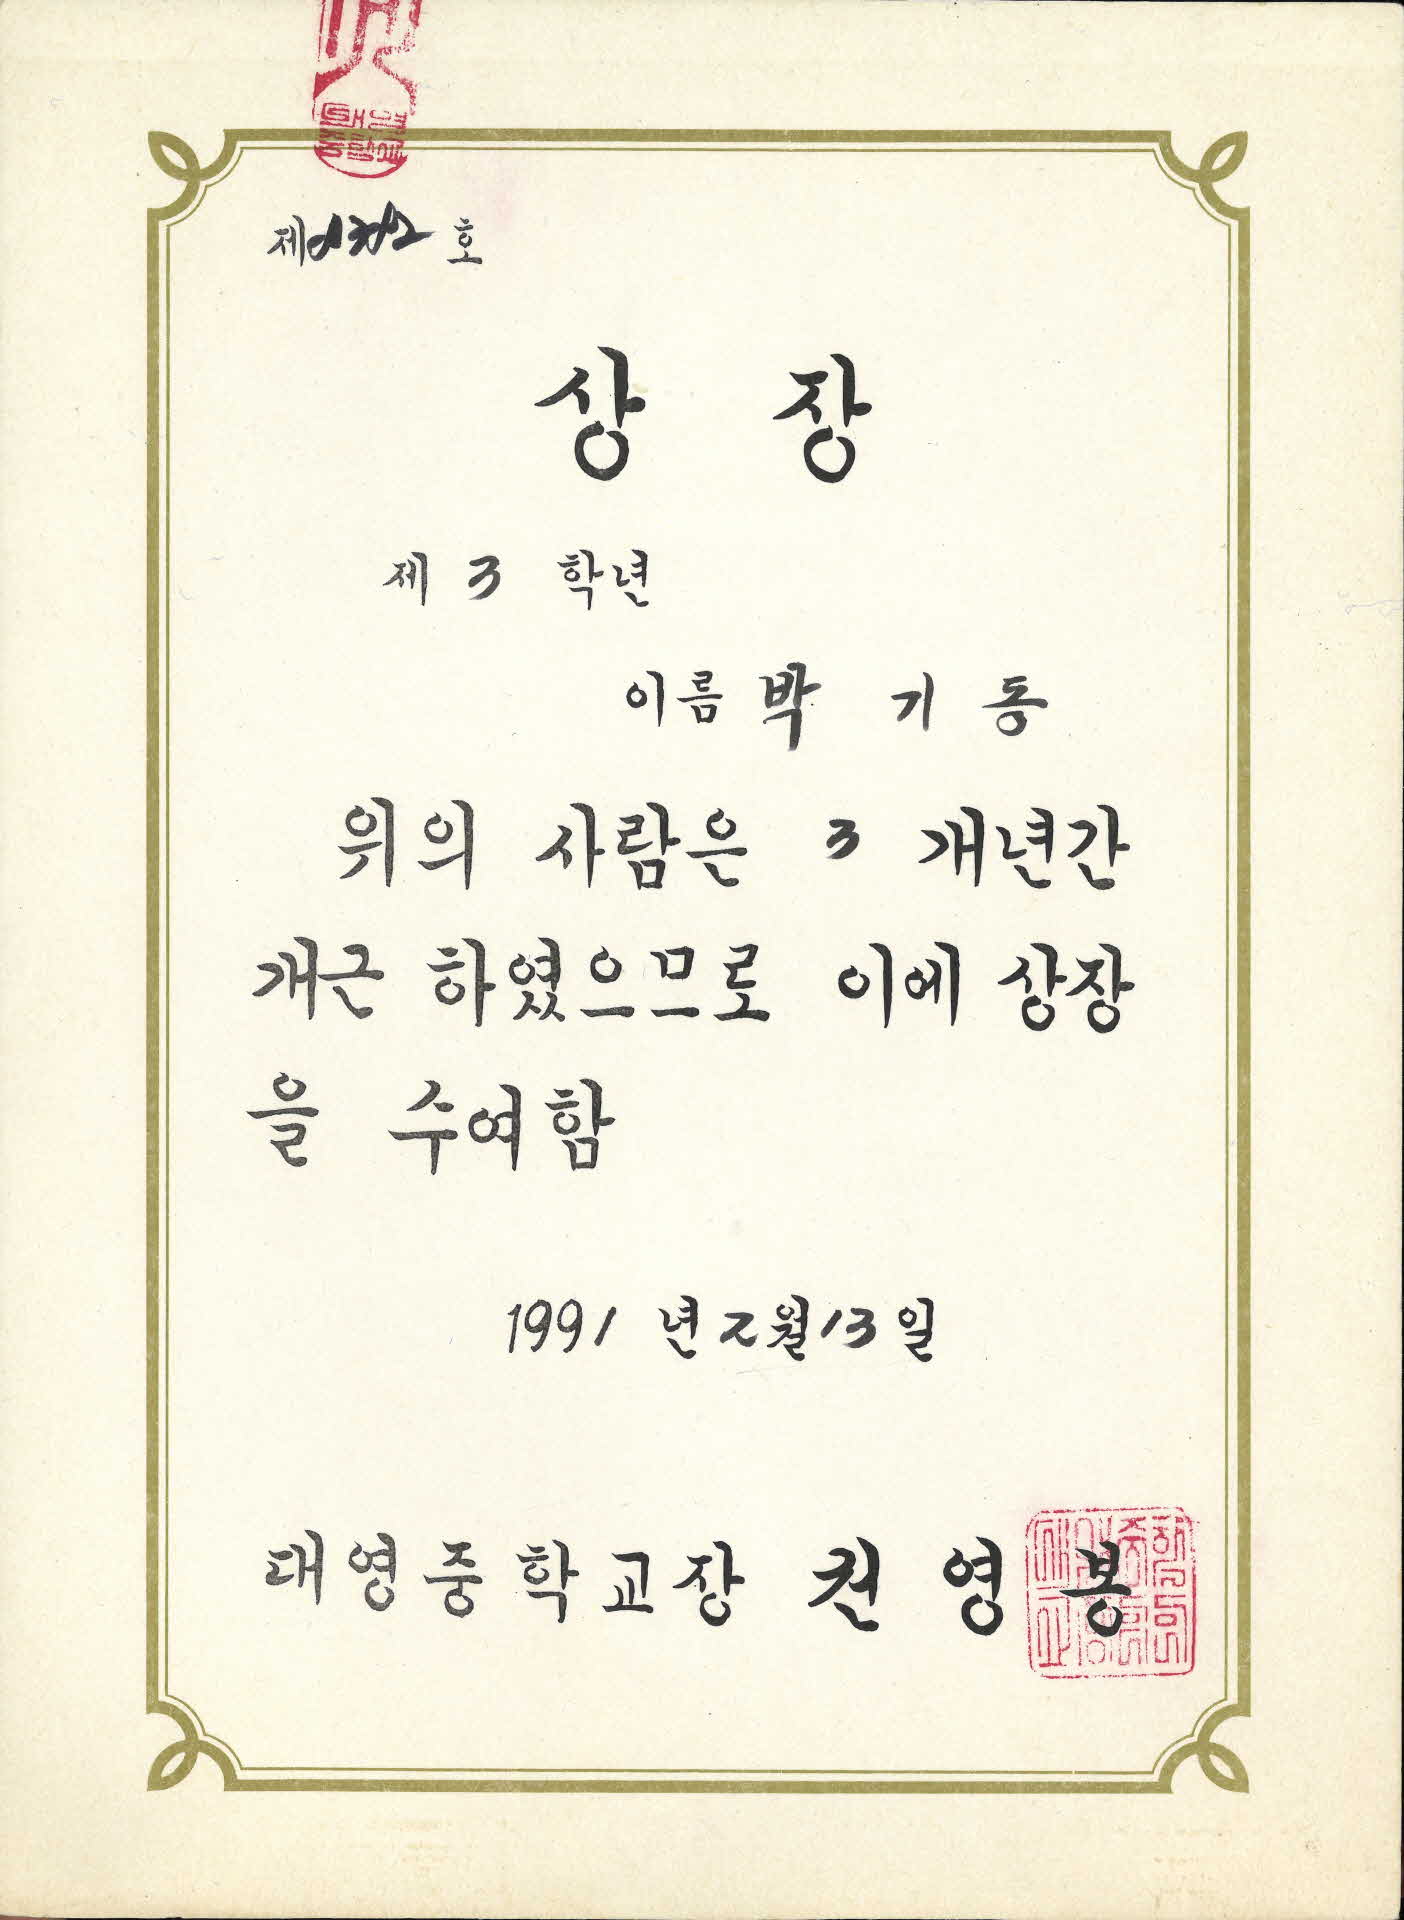 제1312호
상 장
제 3 학년
이름 박 기 동
위의 사람은 3 개년간
개근 하였으므로 이에 상장
을 수여함
1991년 2월 13일
태영중학교장 권 영 봉